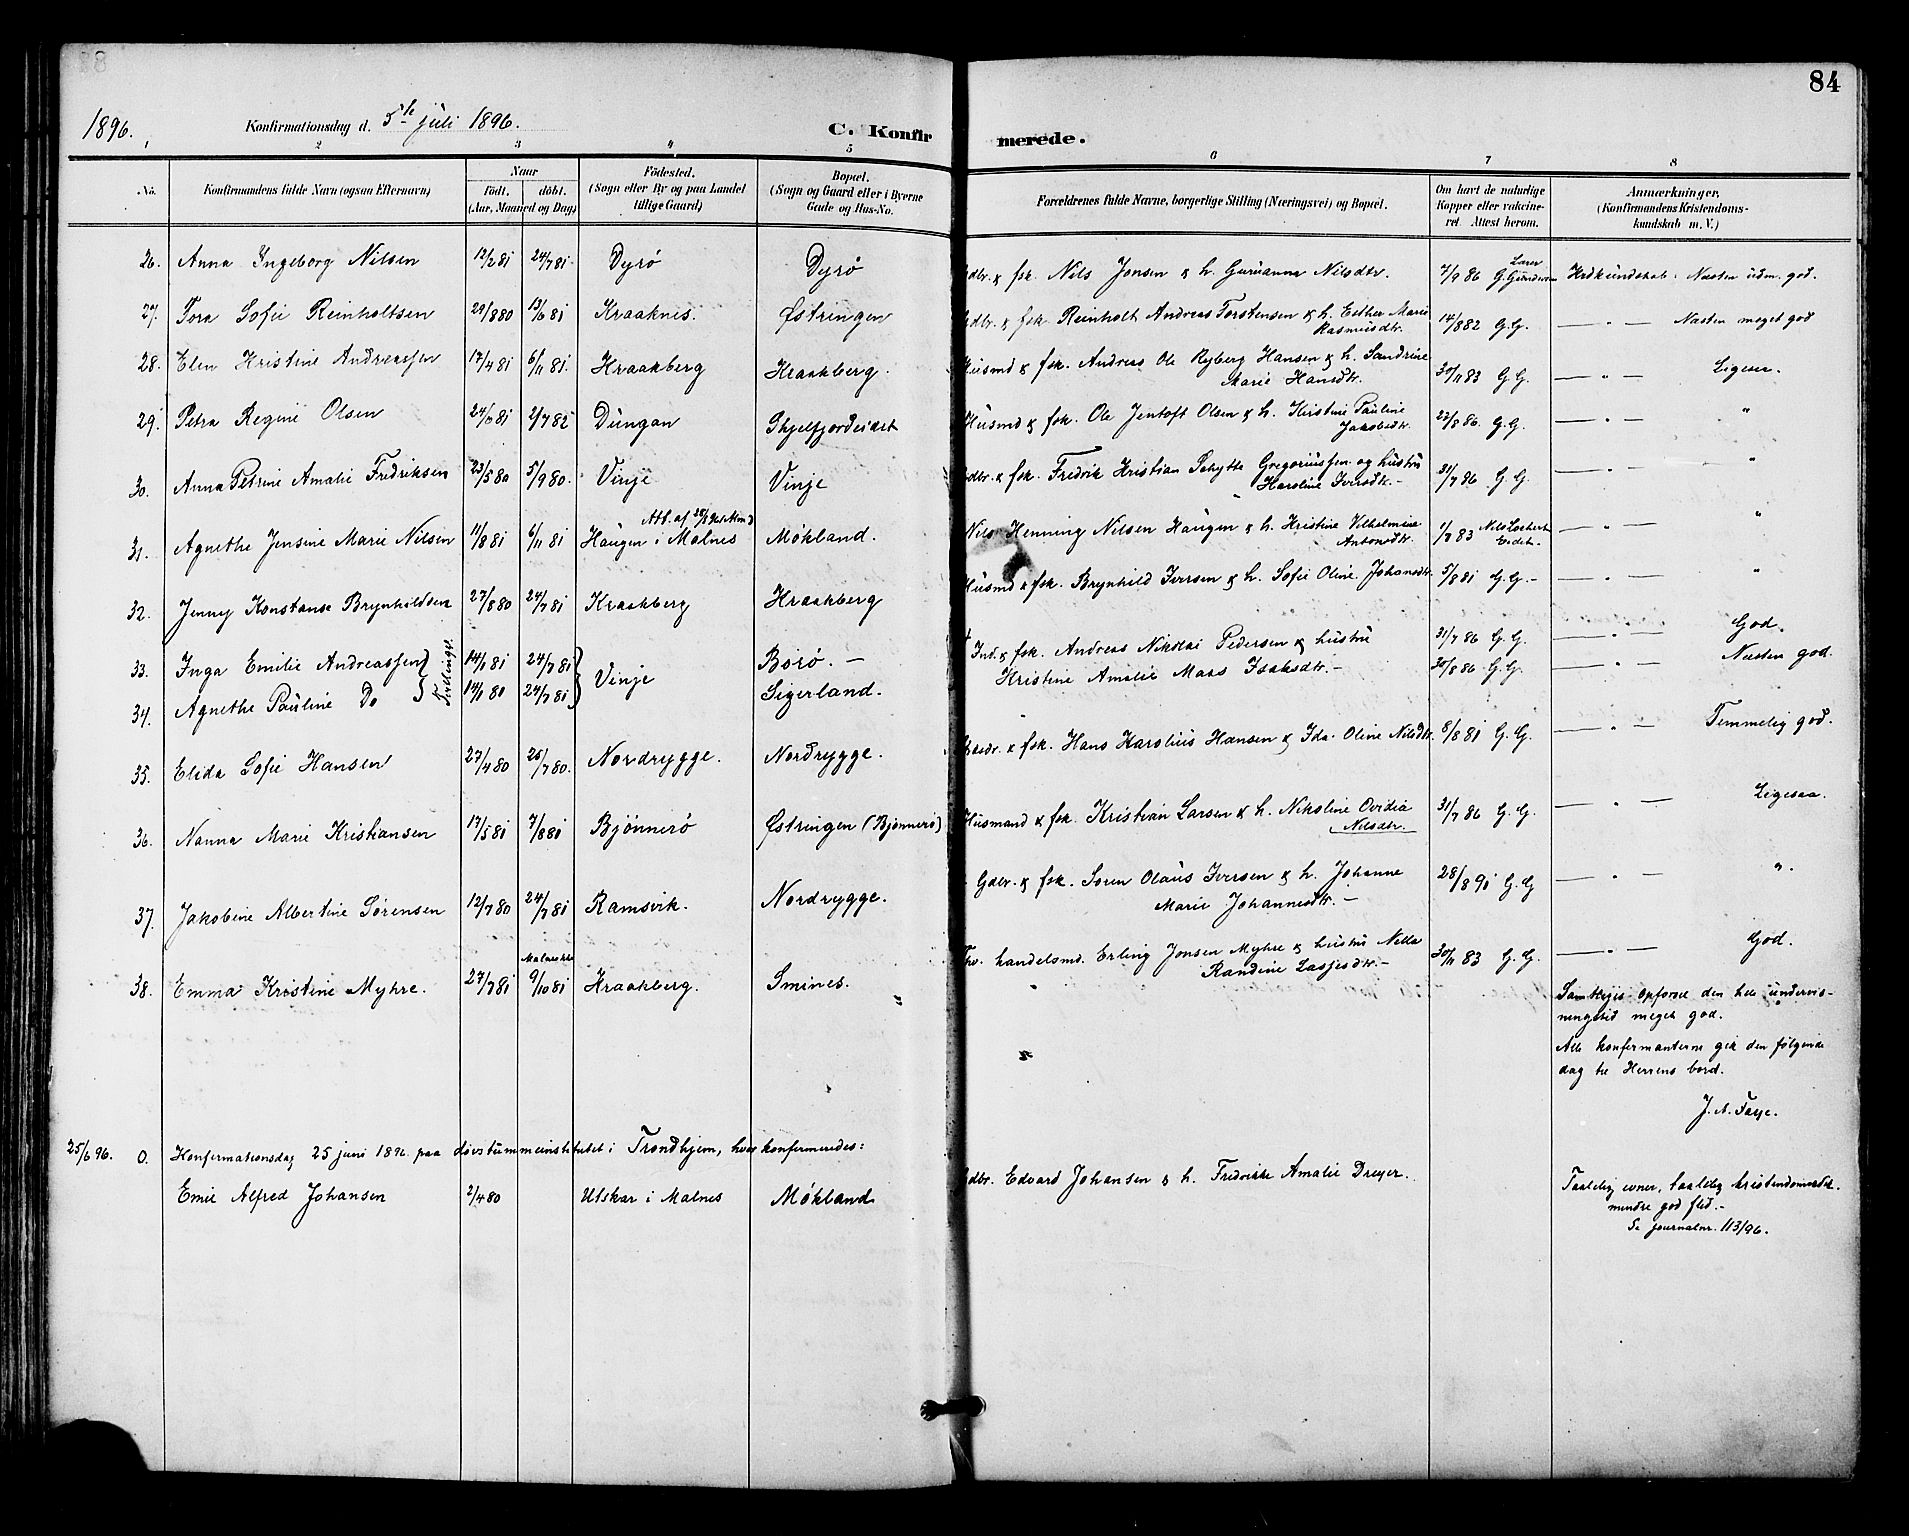 84
1896. Konfirmationsdag d. 5te juli 1896. C. Konfirmerede.
1 2 3 4 5 6 7 8
No. Konfirmandens fulde Navn (ogsaa Efternavn) Naar Födt. döbt. (Aar, Maaned og Dag) Födested. (Sogn eller By og paa Landet tillige Gaard) Bopæl. (Sogn og Gaard eller i Byerne Gade og Hus-No. Forældrenes fulde Navne, borgerlige Stilling (Næringsvei) og Bopæl. Om havt de naturlige Kopper eller vakcineret Attest herom. Anmærkninger, (Konfirmandens Kristendomskundskab m. V.)
26. Anna Ingeborg Nilsen 12/2 81 24/7 81 Dyrö Dyrö Gdbr. & fsk. Nils Jonsen & h. Gurianna Nilsdtr. 7/9 86 Lærer G. Gundersen Krdkundskab Næsten udm. god.
27. Tora Sofie Reinholtsen 29/8 80 13/6 81 Kraaknes. Østringen Gdbr. & fsk. Reinholt Andreas Torstensen & h. Esther Marie Rasmusdtr. 14/8 82 G.G. — " — Næsten meget god
28. Elen Kristine Andreassen 17/4 81 6/11 81. Kraakberg Kraakberg. Husmd & fsk. Andreas Ole Ryberg Hansen & h. Sandrine Marie Hansdtr. 30/11 83 G.G. — " — Ligesaa.
29. Petra Regine Olsen 2/7 82 Dungan Skjelfjordeidet Husmd & fsk. Ole Jentoft Olsen & h. Kristine Pauline Jakobsdtr. 27/8 86. G.G. — " — "
30. Anna Petrine Amalie Fredriksen 23/5 80 5/9 80. Vinje Vinje Gdbr. & fsk. Fredrik Kristian Schytte Gregoriussen og hustru Karoline Iversdtr. – 31/7 86 G.G. — " — "
31. Agnethe Jensine Marie Nilsen 11/8 81 6/11 81 Haugen i Malnes Møkland. Nils Henning Nilsen Haugen & h. Kristine Vilhelmine Antonsdtr. 1/8 83 — " — "
32. Jenny Konstanse Brynhildsen 27/8 80 24/7 81 Kraakberg Kraakberg Husmd & fsk. Brynhild Iversen & h. Sofie Oline Johansdtr. 5/8 81 G.G. – — " — "
33. Inga Emilie Andreassen Tvillinger. 14/1 81 24/7 81 Vinje Børø. – Ind. & fsk. Andreas Nikolai Pedersen & hustru 31/7 86 G.G. — " — God.
34. Agnethe Pauline Do 14/1 81 24/7 81 Sigerland. Kristine Amalie Maas Isaksdtr. – 30/8 86 G.G. — " — Næsten god.
35. Elida Sofie Hansen 27/4 80 25/7 80. Nordrygge. Nordrygge. & fsk. Hans Karolius Hansen & Ida Oline Nilsdtr. 8/8 81 G.G. — " — Temmelig god.
36. Nanna Marie Kristiansen 17/5 81 7/8 81 Bjönnerö Østringen (Bjönnerö) Husmand & fsk. Kristian Larsen & h. Nikoline Ovidia Nilsdtr. 31/7 86 G.G. — " — Ligesaa.
37. Jakobine Albertine Sørensen 12/7 80 24/7 81 Ramsvik. Nordrygge. Gdbr. & fsk. Sören Olaus Iversen & h. Johanne Marie Johannesdtr. – 28/8 91 G.G — " — ".
38. Emma Kristine Myhre. 27/7 81 9/10 81 Kraakberg. Smines. handelsmd. Erling Jonsen Myhre & hustru Nella Randine Lassesdtr. – 30/11 83 G.G. — " — God.
Samtliges opførsel den hele undervisningstid meget god.
Alle konfirmanterne gik den følgende dag til Herrens bord.
J. A. Faye.
25/6 96. 0. Konfirmationsdag 25 juni 1896 paa døvstummeinstitutet i Trondhjem, hvor konfirmeredes:
Emil Alfred Johansen 2/4 80 Utskar i Malnes Møkland Gdbr. Edvard Johansen & h. Fredrikke Amalie Dreyer. Taalelig evner, taalelig kristendomskdsk. mindre god flid. –
Se journalnr. 113/96.